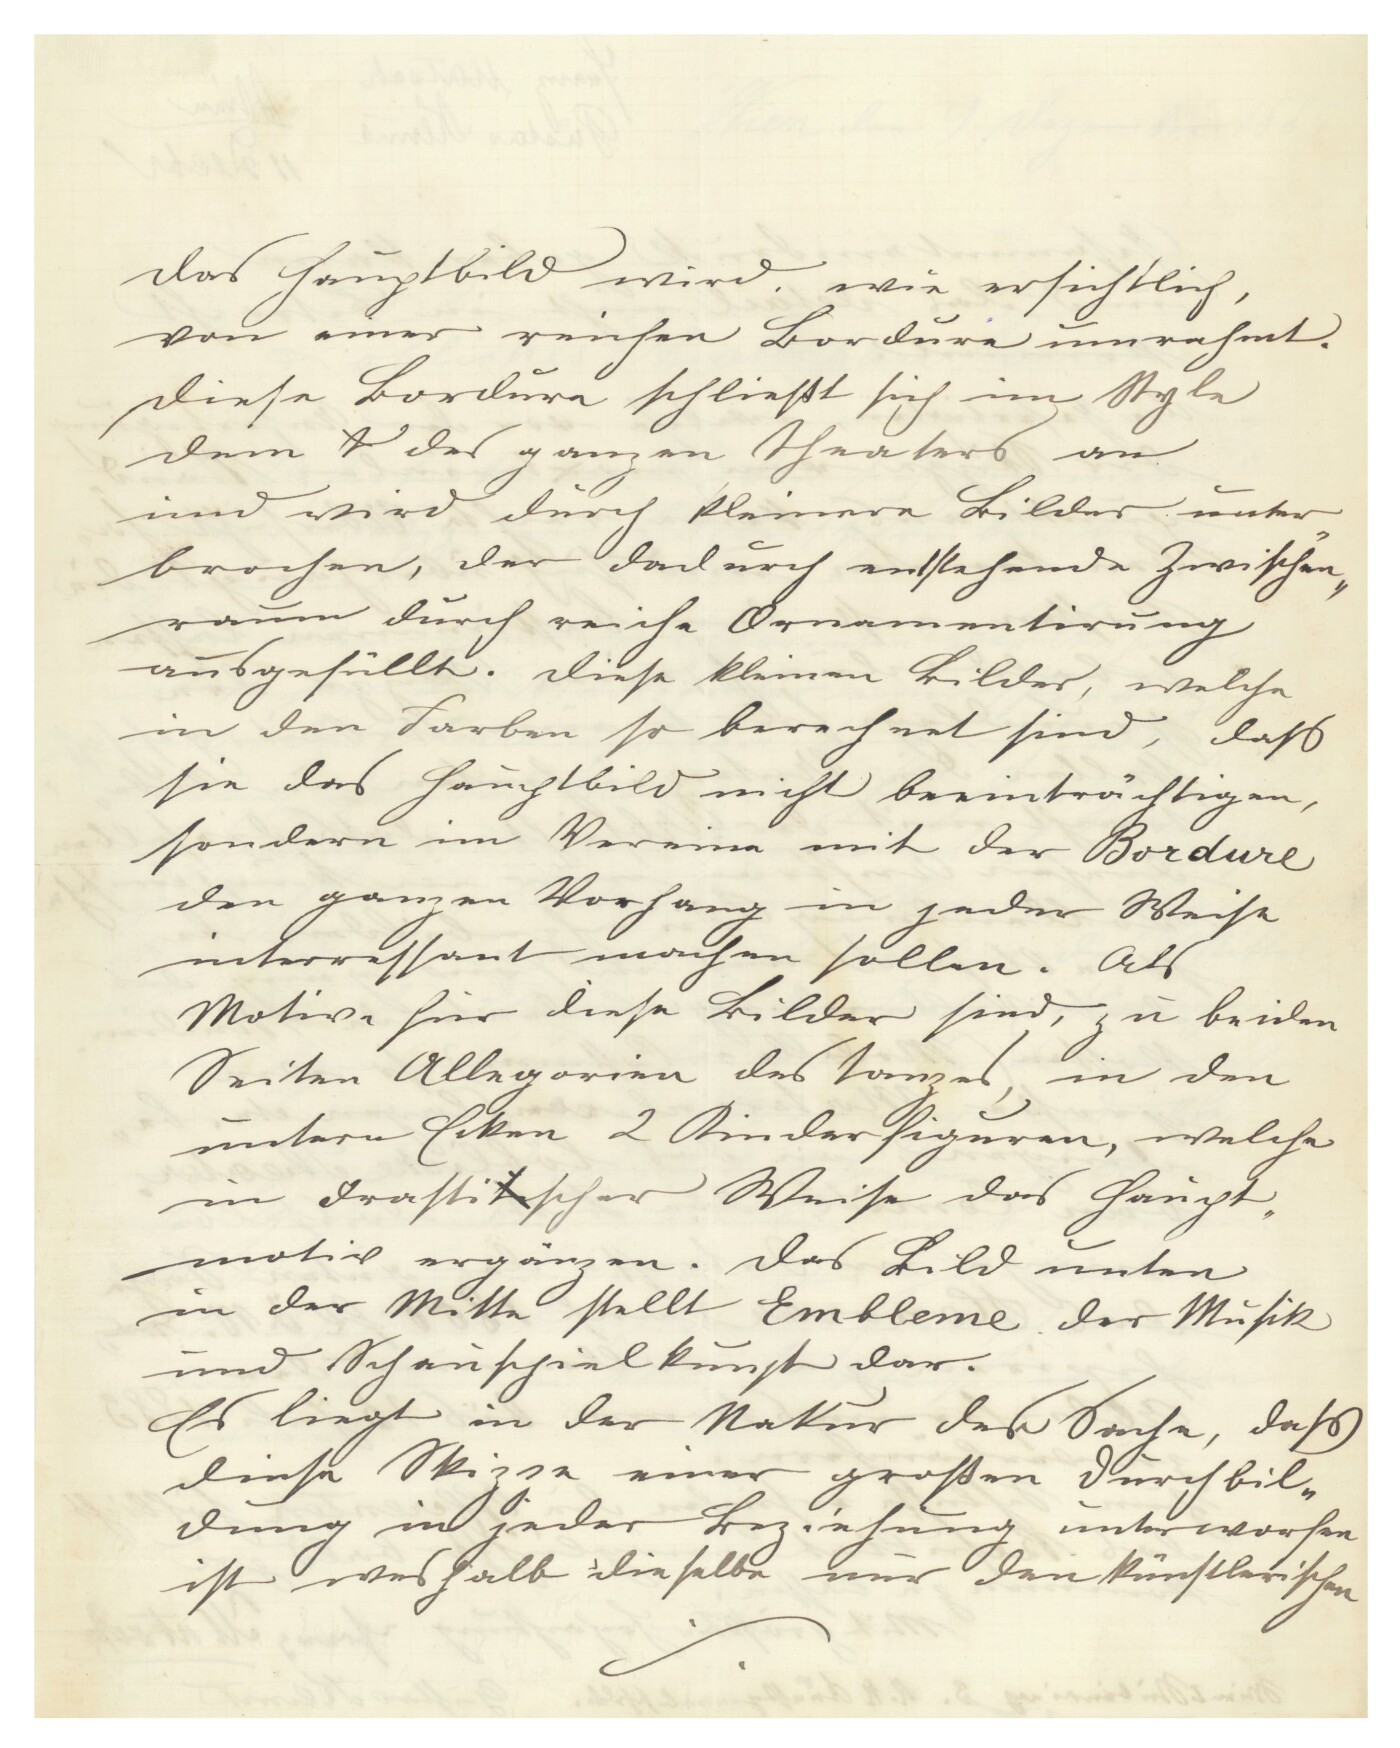 Das Hauptbild wird. wie ersichtlich,
von einer reichen Bordure umrahmt.
Diese Bordure schließt sich im Style
dem des ganzen Theaters an
und wird durch kleinere Bilder unter„
brochen, der dadurch entstehende Zwischen„
raum durch reiche Ornamentirung
ausgefüllt. Diese kleinen Bilder, welche
in den Farben so berechnet sind, dass
sie das Hauptbild nicht beeinträchtigen,
sondern im Vereine mit der Bordure
den ganzen Vorhang in jeder Weise
interressant machen sollen. Als
Motive für diese Bilder sind, zu beiden
Seiten Allegorien des Tanzes, in den
untern Ecken 2 Kinderfiguren, welche
in drastischer Weise das Haupt„
motiv ergänzen. Das Bild unten
in der Mitte stellt Embleme der Musik
und Schauspielkunst dar.
Es liegt in der Natur der Sache, dass
diese Skizze einer großen Durchbil„
dung in jeder Beziehung unterworfen
ist weshalb dieselbe nur den künstlerischen